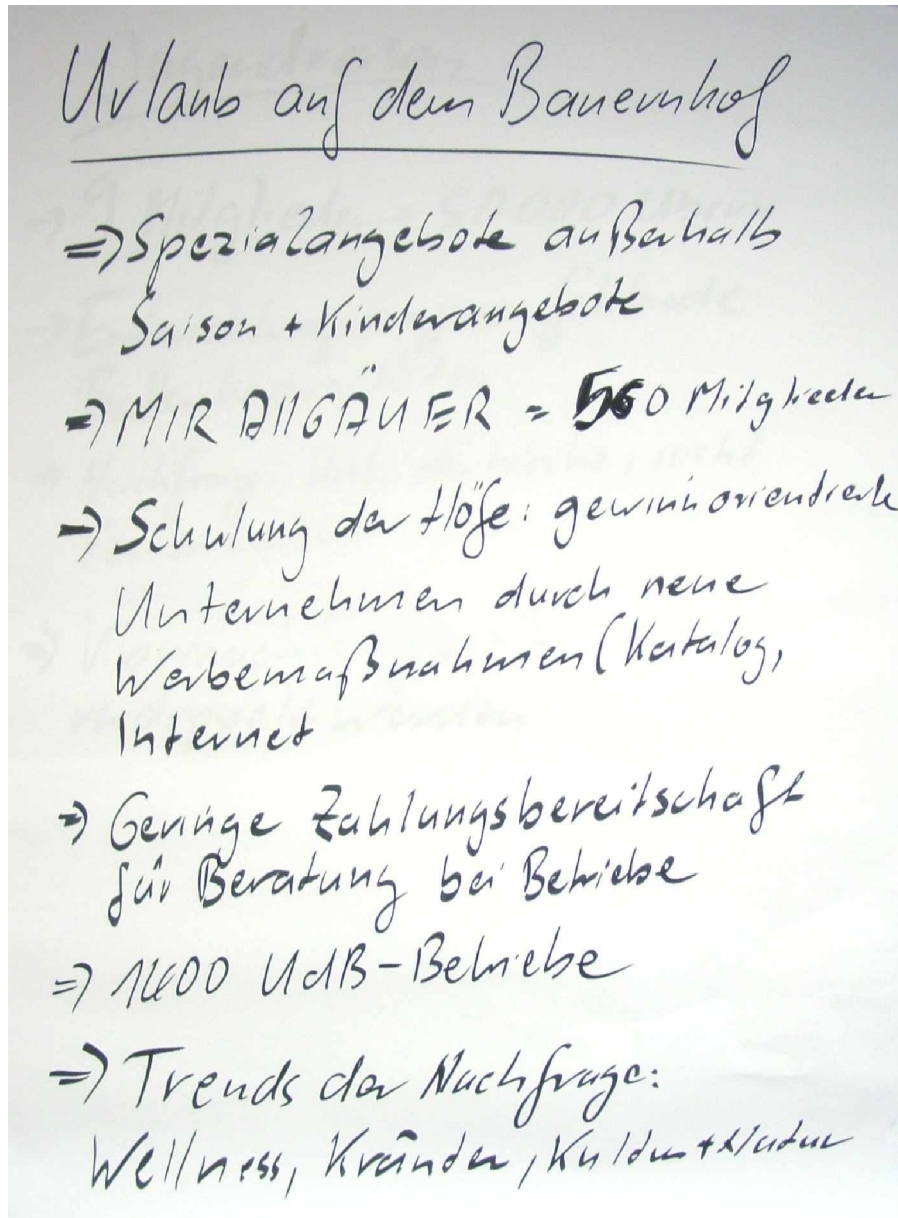 Urlaub auf dem Bauernhof
=> Spezialangebote außerhalb
Saison + Kinderangebote
=> MIR ALLGÄUER = 560 Mitglieder
=> Schulung der Höfe: gewinnorientierte
Unternehmen durch neue
Werbemaßnahmen (Katalog,
Internet
=> Geringe Zahlungsbereitschaft
für Beratung bei Betriebe
=> 1400 UdB-Betriebe
=> Trends der Nachfrage:
Wellness, Kräuter, Kultur + Natur